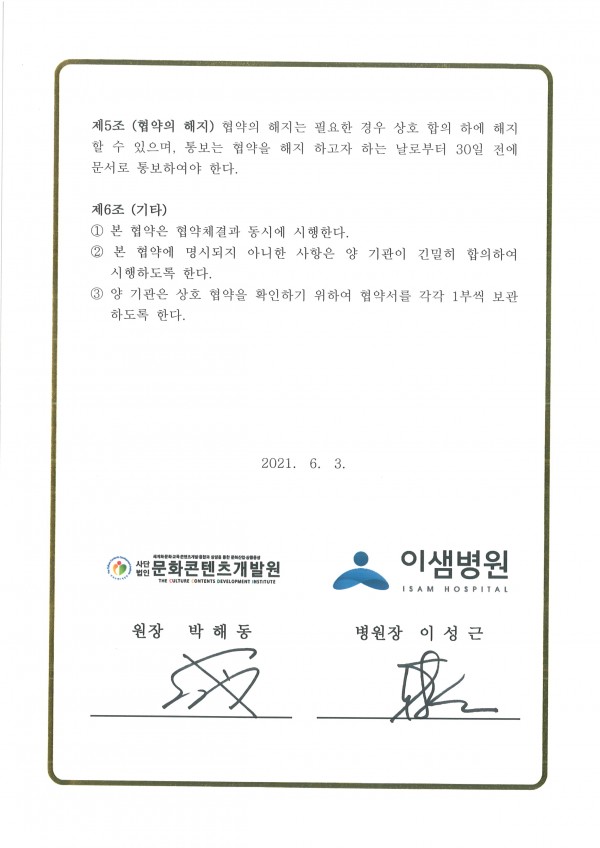 제5조 (협약의 해지) 협약의 해지는 필요한 경우 상호 합의 하에 해지
할 수 있으며, 통보는 협약을 해지 하고자 하는 날로부터 30일 전에
문서로 통보하여야 한다.
제6조 (기타)
① 본 협약은 협약체결과 동시에 시행한다.
② 본 협약에 명시되지 아니한 사항은 양 기관이 긴밀히 합의하여
시행하도록 한다.
③ 양 기관은 상호 협약을 확인하기 위하여 협약서를 각각 1부씩 보관
하도록 한다.
2021. 6. 3.
사단
법인 문화콘텐츠개발원
THE CULTURE CONTENTS DEVELOPMENT INSTITUTE
이샘병원
ISAM HOSPITAL
원장 박해동
병원장 이성근